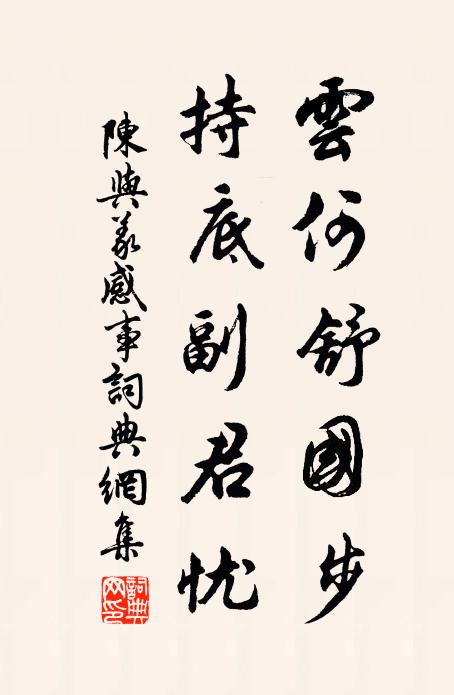 雲何舒國步
持底副君忧
陳與義感事詞典網集
詞典網印